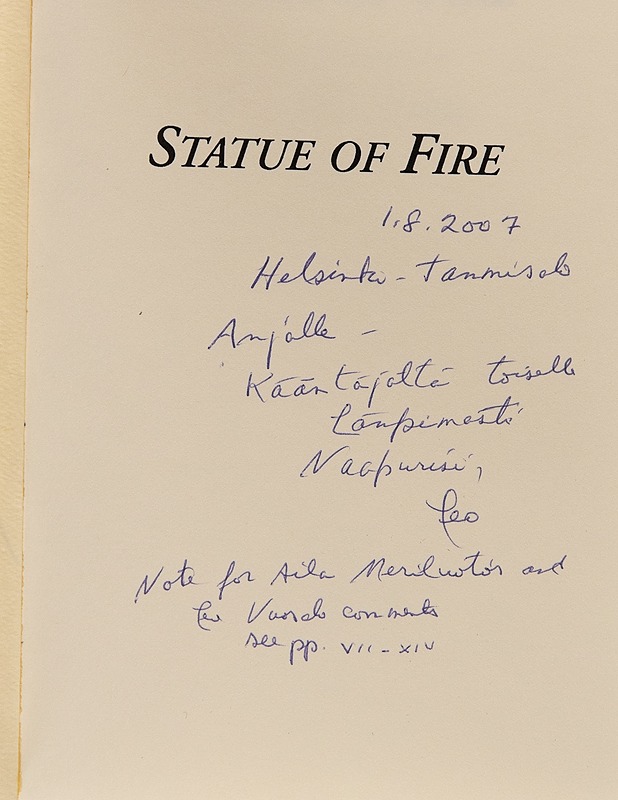 STATUE OF FIRE
1.8.2007
Helsinki - Tammisalo
Anjalle -
Kääntäjältä toiselle
Lämpimästi
Naapurisi,
Leo
Note for Aila Meriluoto's and
Leo Vuosalo comments
see pp. VII - XIV